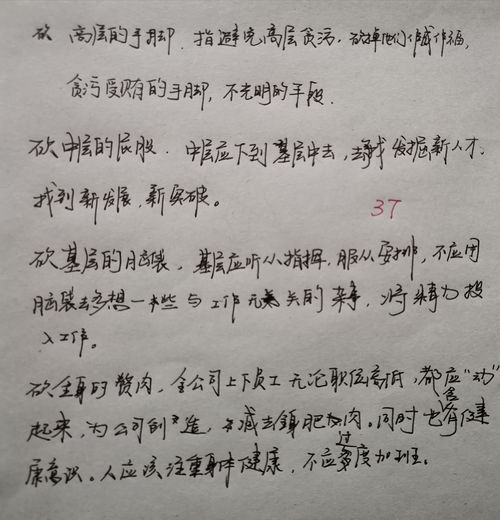 砍 高层的手脚，指避免高层贪污，砍掉他们作威作福，
贪污受贿的手脚，不光明的手段.
砍中层的屁股. 中层应下到基层中去，去找 发掘新人才.
找到新发展，新突破。
37
砍基层的脑袋，基层应听从指挥，服从安排，不应用
脑袋去多想一些与工作无关的杂事，将精力投
入工作。
砍全身的赘肉，全公司上下员工无论职位高低，都应“动”
起来，为公司创造，减去肥肉。同时也会有健
康意识。人应该注重身体健康，不应过度加班。